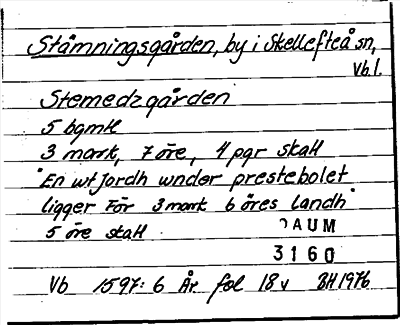 Stämningsgården, by i Skellefteå sn,
Vb.l.
Stemedzgården
5 bgmtl
3 mark, 7 öre, 4 pgr skatt
"En wtjordh wnder prestebolet
ligger för 3 mark 6 öres landh"
5 öre skatt
DAUM
3160
Vb 1597: 6 År fol 18 v BH 1976